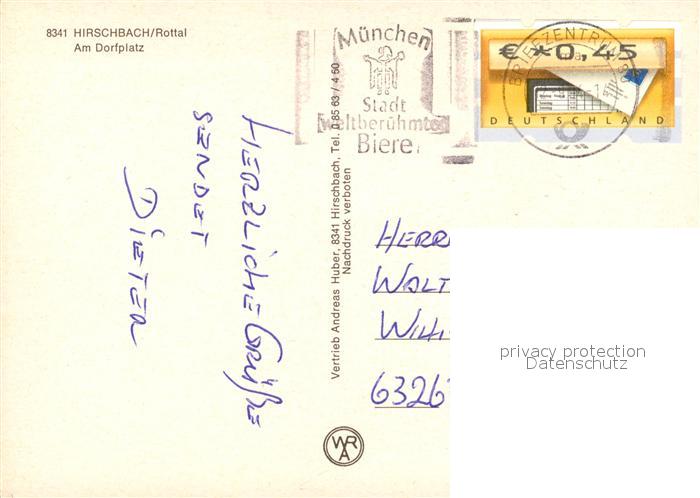 8341 HIRSCHBACH/Rottal
Am Dorfplatz
München
Stadt
weltberühmter
Biere
€ *0,45
DEUTSCHLAND
BRIEFZENTRUM
HERZLICHE GRÜßE
SENDET
DIETER
Vertrieb Andreas Huber, 8341 Hirschbach, Tel. 0 85 63 / 4 60
Nachdruck verboten
HERR
WALT
WILH
6326
WRA
privacy protection
Datenschutz